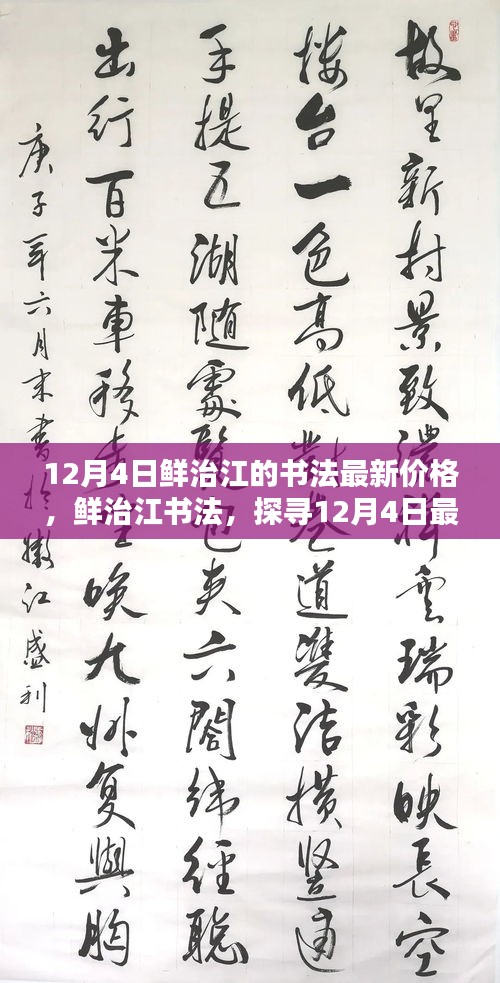 故里新村景致雲瑞彩映長空
楼台一色高低道雙洁橫豎通
手提五湖随處夹六閣緯經聪
出行百米車移唤九州复興胸
庚子年六月末書於嫩江盛利
12月4日鲜治江的书法最新价格
，鲜治江书法，探寻12月4日最